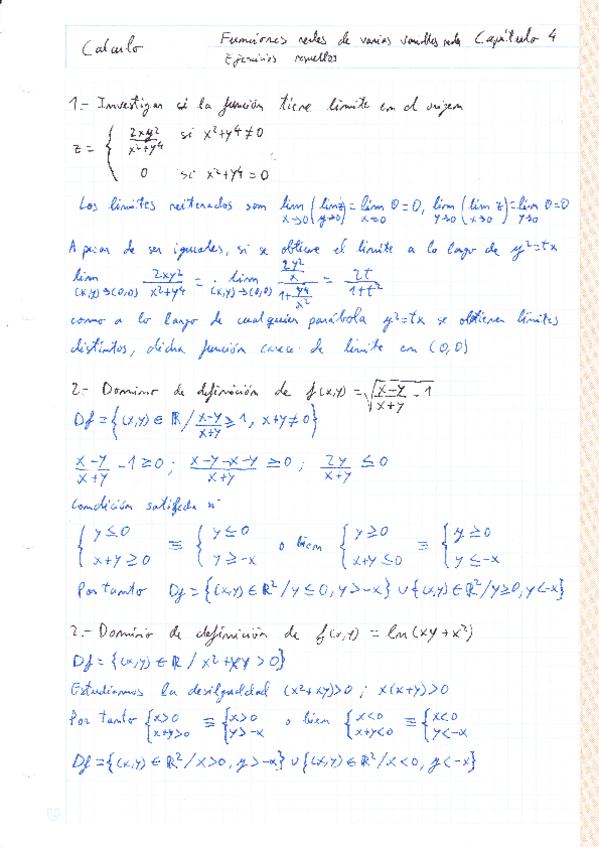 Calculo
Funciones reales de varias variables reales Capítulo 4
Ejercicios resueltos
1.- Investigar si la función tiene límite en el origen
z = { 2xy²/(x²+y⁴) si x²+y⁴≠0
0 si x²+y⁴=0
Los límites reiterados son lim x→0 (lim y→0 z) = lim x→0 0 = 0, lim y→0 (lim x→0 z) = lim y→0 0 = 0
A pesar de ser iguales, si se obtiene el límite a lo largo de y²=tx
lim (x,y)→(0,0) 2xy²/(x²+y⁴) = lim (x,y)→(0,0) (2y²/x)/(1+y⁴/x²) = 2t/(1+t²)
como a lo largo de cualquier parábola y²=tx se obtienen límites
distintos, dicha función carece de límite en (0,0)
2.- Dominio de definición de f(x,y) = √((x-y)/(x+y) - 1)
Df = {(x,y) ∈ ℝ / (x-y)/(x+y) ≥ 1, x+y≠0}
(x-y)/(x+y) - 1 ≥ 0 ; (x-y-x-y)/(x+y) ≥ 0 ; 2y/(x+y) ≤ 0
Condición satisfecha si
{ y≤0 x+y≥0 ≡ { y≤0 y≥-x o bien { y≥0 x+y≤0 ≡ { y≥0 y≤-x
Por tanto Df = {(x,y) ∈ ℝ² / y≤0, y>-x} ∪ {(x,y) ∈ ℝ² / y≥0, y<-x}
2.- Dominio de definición de f(x,y) = ln(xy+x²)
Df = {(x,y) ∈ ℝ / x²+xy > 0}
Estudiamos la desigualdad (x²+xy)>0 ; x(x+y)>0
Por tanto { x>0 x+y>0 ≡ { x>0 y>-x o bien { x<0 x+y<0 ≡ { x<0 y<-x
Df = {(x,y) ∈ ℝ² / x>0, y>-x} ∪ {(x,y) ∈ ℝ² / x<0, y<-x}